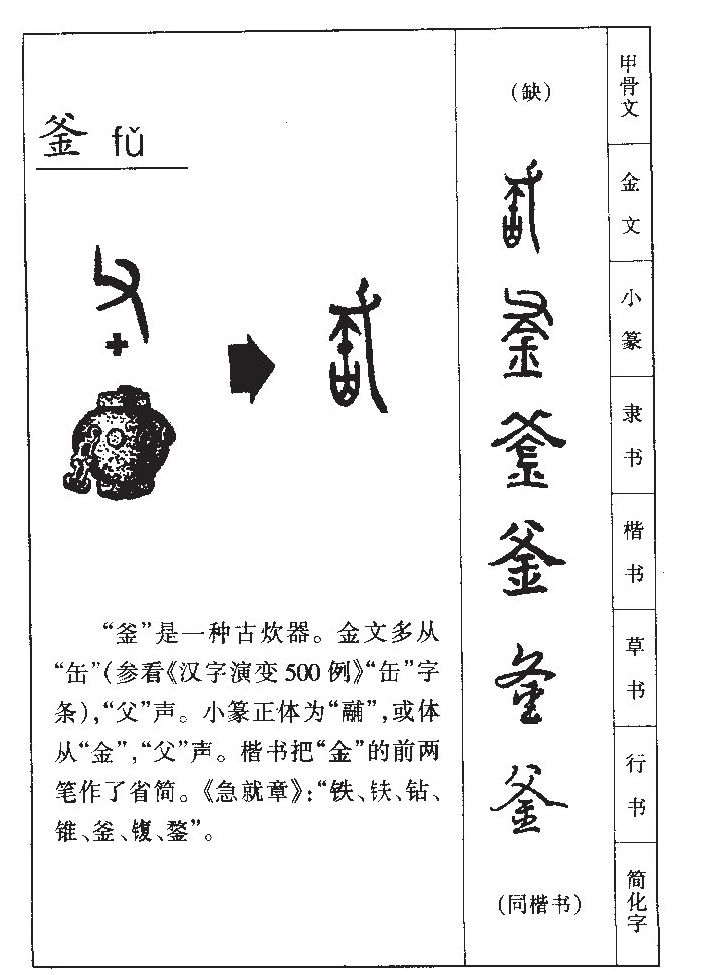 釜 fǔ
“釜”是一种古炊器。金文多从
“缶”(参看《汉字演变500例》“缶”字
条),“父”声。小篆正体为“鬴”,或体
从“金”,“父”声。楷书把“金”的前两
笔作了省简。《急就章》:“铁、𫓧、钻、
锥、釜、鍑、鍪”。
(缺)
釜
釜
釜
釜
釜
釜
(同楷书)
甲骨文
金文
小篆
隶书
楷书
草书
行书
简化字